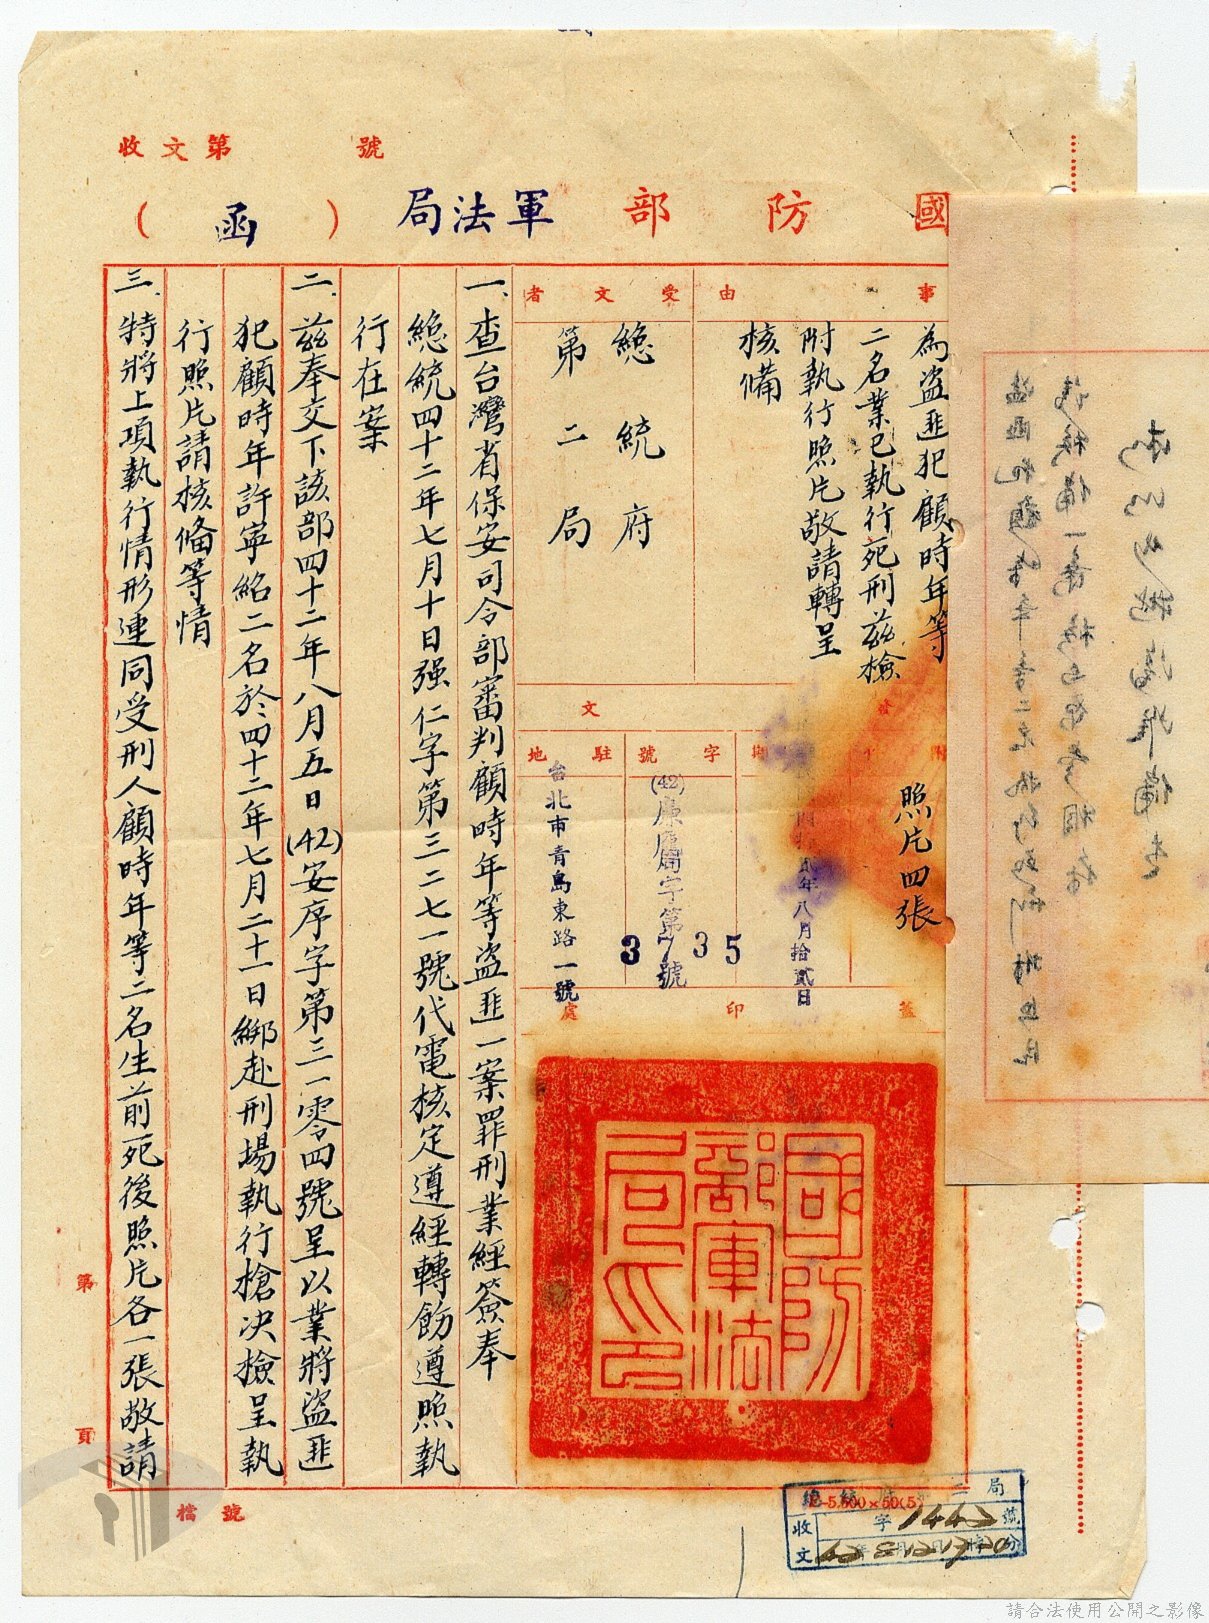 收文第　　號
國防部軍法局（函）
事由
為盜匪犯顧時年等
二名業已執行死刑茲檢
附執行照片敬請轉呈
核備
受文者
總統府
第二局
附
照片四張
發文
期
貳年八月拾貳日
字號
(42)廉
字第3735號
駐地
台北市青島東路一號
蓋印處
國防部軍法局印
一、查台灣省保安司令部審判顧時年等盜匪一案罪刑業經簽奉
總統四十二年七月十日强仁字第三二七一號代電核定遵經轉飭遵照執
行在案
二、茲奉交下該部四十二年八月五日(42)安序字第三一零四號呈以業將盜匪
犯顧時年許寧紹二名於四十二年七月二十一日綁赴刑場執行槍决檢呈執
行照片請核俻等情
三、特將上項執行情形連同受刑人顧時年等二名生前死後照片各一張敬請
第　頁
檔號
5,500×50(5)
總統府第二局
收文
字1442號
請合法使用公開之影像